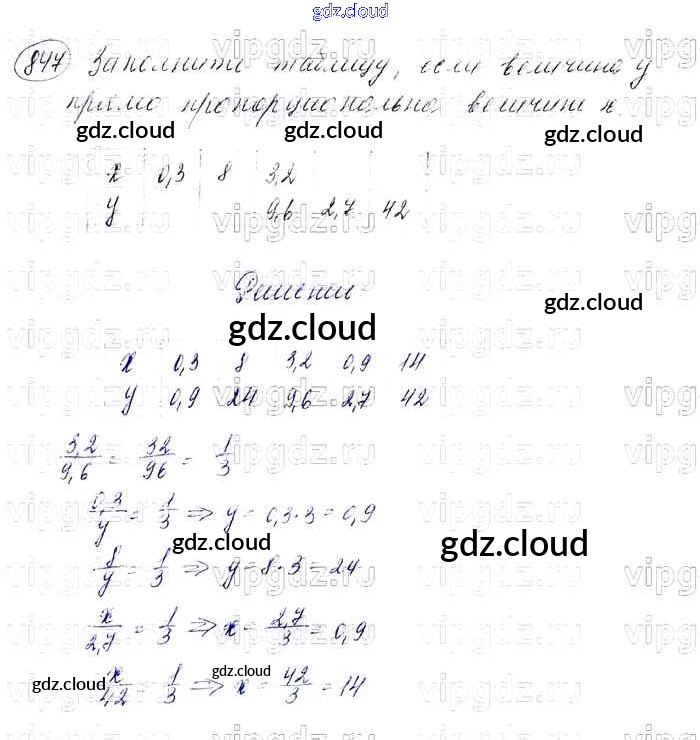 gdz.cloud
847 Заполните таблицу, если величина y
прямо пропорциональна величине x.
gdz.cloud
gdz.cloud
x 0,3 8 3,2
y 9,6 2,7 42
Решение
gdz.cloud
gdz.cloud
x 0,3 8 3,2 0,9 14
y 0,9 24 9,6 2,7 42
3,2/9,6 = 32/96 = 1/3
0,3/y = 1/3 ⇒ y = 0,3·3 = 0,9
gdz.cloud
gdz.cloud
8/y = 1/3 ⇒ y = 8·3 = 24
x/2,7 = 1/3 ⇒ x = 2,7/3 = 0,9
gdz.cloud
gdz.cloud
x/42 = 1/3 ⇒ x = 42/3 = 14
gdz.cloud